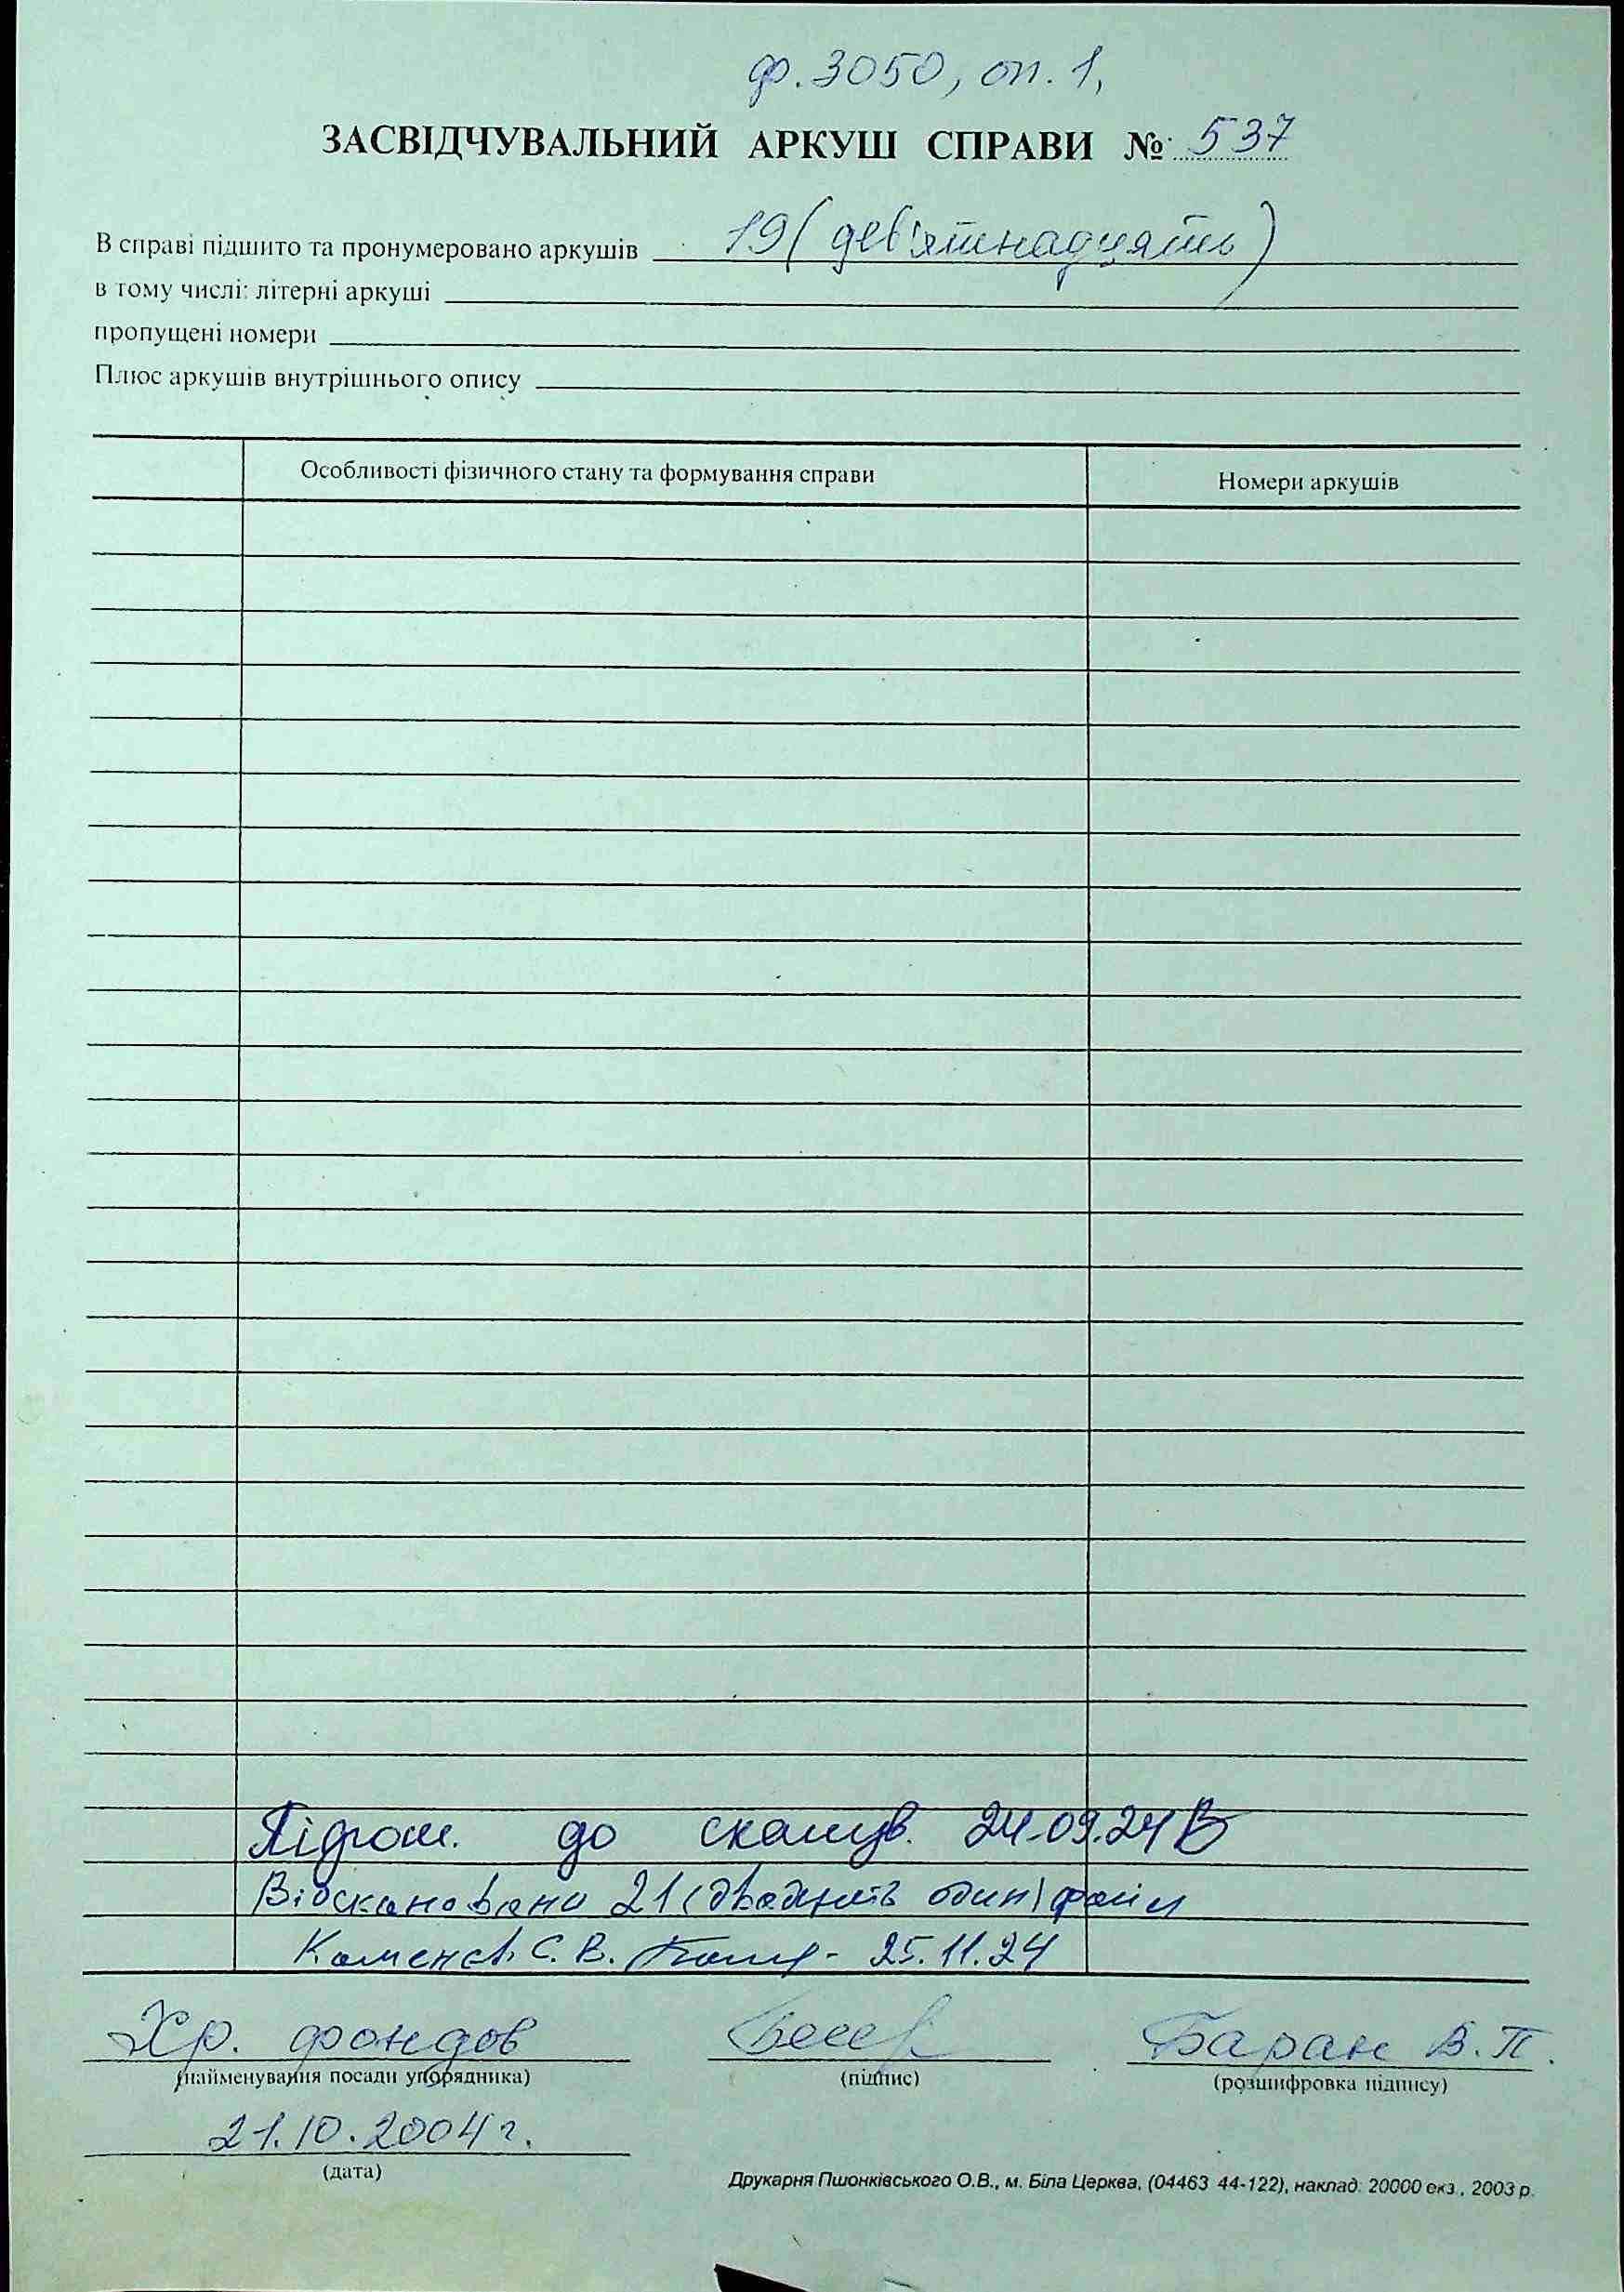 ф.3050, оп. 1,
ЗАСВІДЧУВАЛЬНИЙ АРКУШ СПРАВИ № 537
В справі підшито та пронумеровано аркушів 19 (дев'ятнадцять)
в тому числі: літерні аркуші
пропущені номери
Плюс аркушів внутрішнього опису
Особливості фізичного стану та формування справи Номери аркушів
до сканув. 24.09.24
Відскановано 21 (двадцять один) файл
С. В. 25.11.24
Хр. фондов Баран В.П.
(найменування посади упорядника) (підпис) (розшифровка підпису)
21.10.2004 г.
(дата)
Друкарня Пшонківського О.В., м. Біла Церква, (04463 44-122), наклад: 20000 екз., 2003 р.